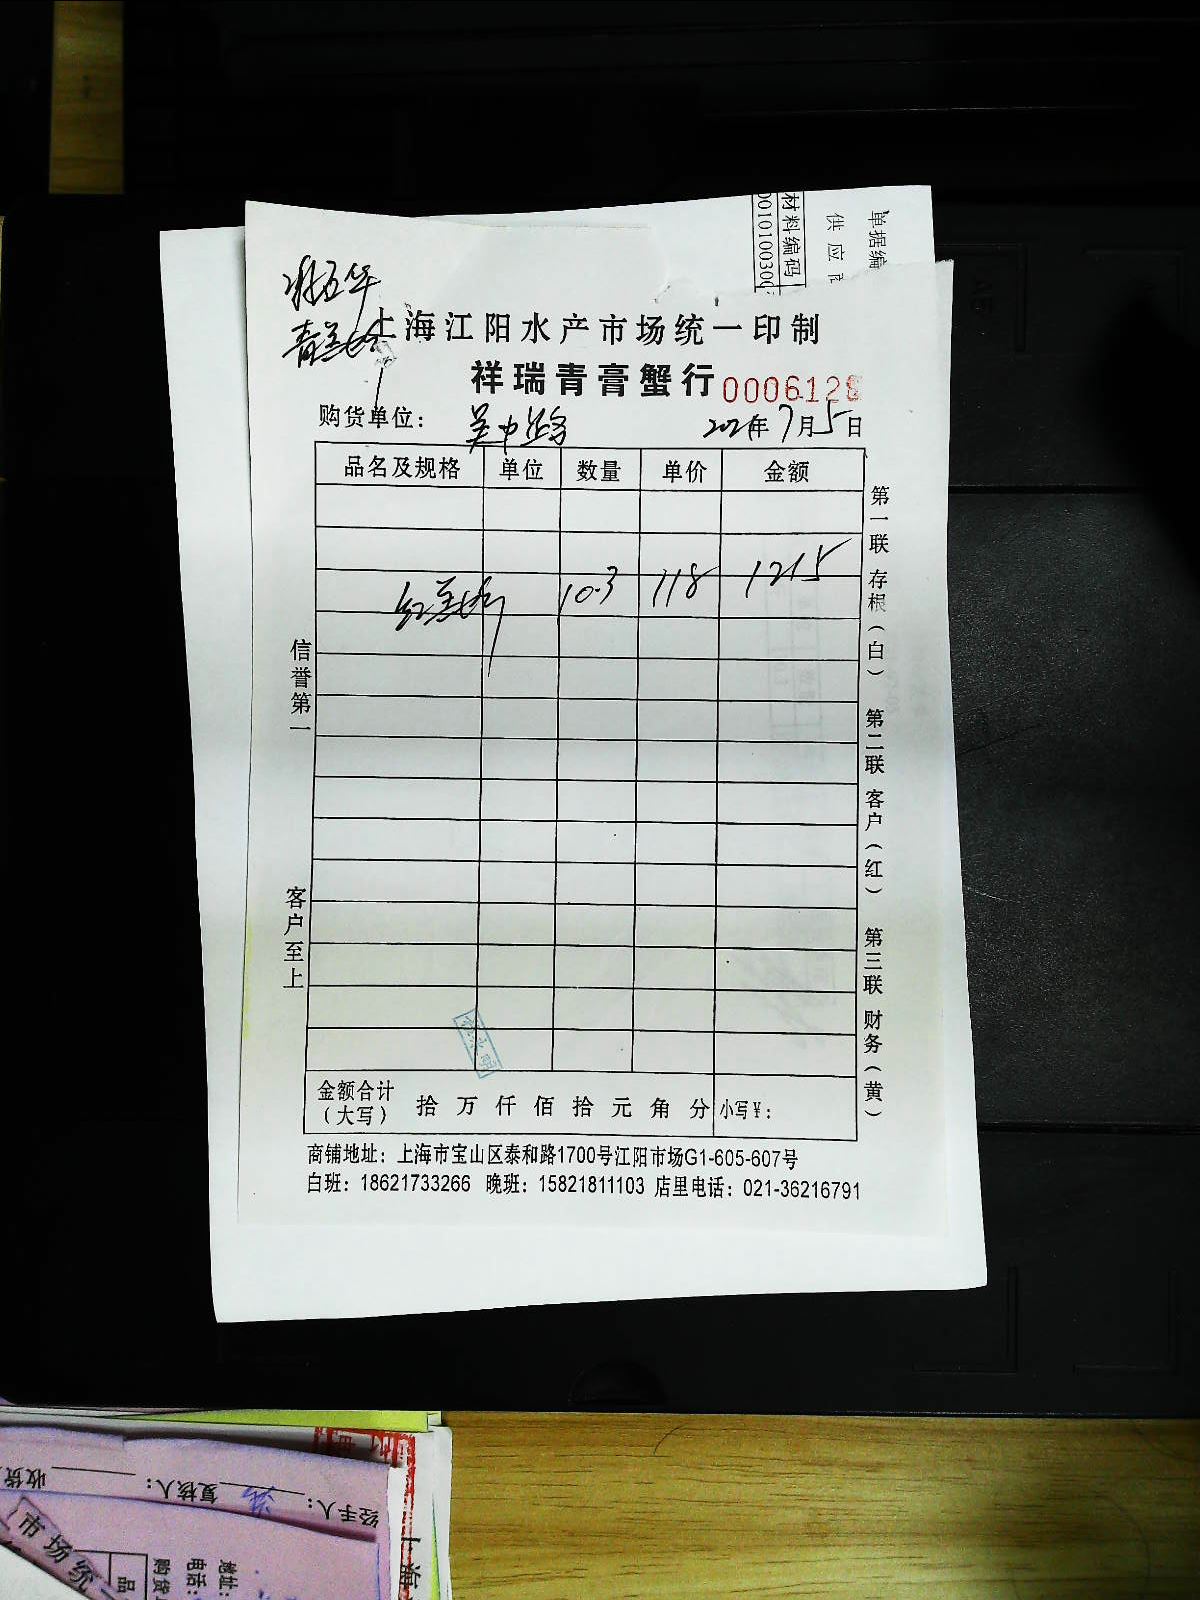 单据编
供应商
材料编码
0010100300
上海江阳水产市场统一印制
祥瑞青膏蟹行 0006128
购货单位： 吴中路 2021年7月5日
品名及规格 单位 数量 单价 金额
10.3 118 1215
信誉第一
客户至上
第一联 存根（白） 第二联 客户（红） 第三联 财务（黄）
金额合计（大写） 拾 万 仟 佰 拾 元 角 分 小写￥：
商铺地址：上海市宝山区泰和路1700号江阳市场G1-605-607号
白班：18621733266 晚班：15821811103 店里电话：021-36216791
经手人： 复核人： 收货
市场统一
地址：
电话：
购货
品
上海